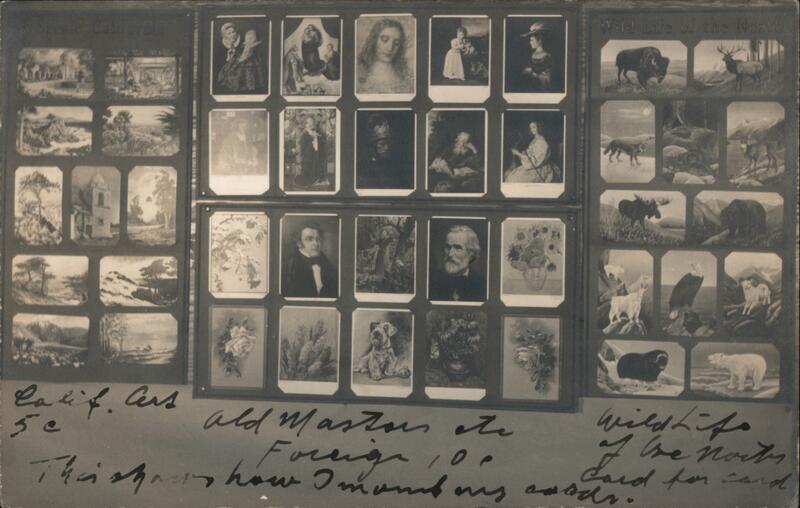 Scenic California
Wild Life of the North
Calif. Arts
5 c
Old Masters etc
Foreign 10c
Wild Life
of the North
Card for card
This shows how I mount my cards.